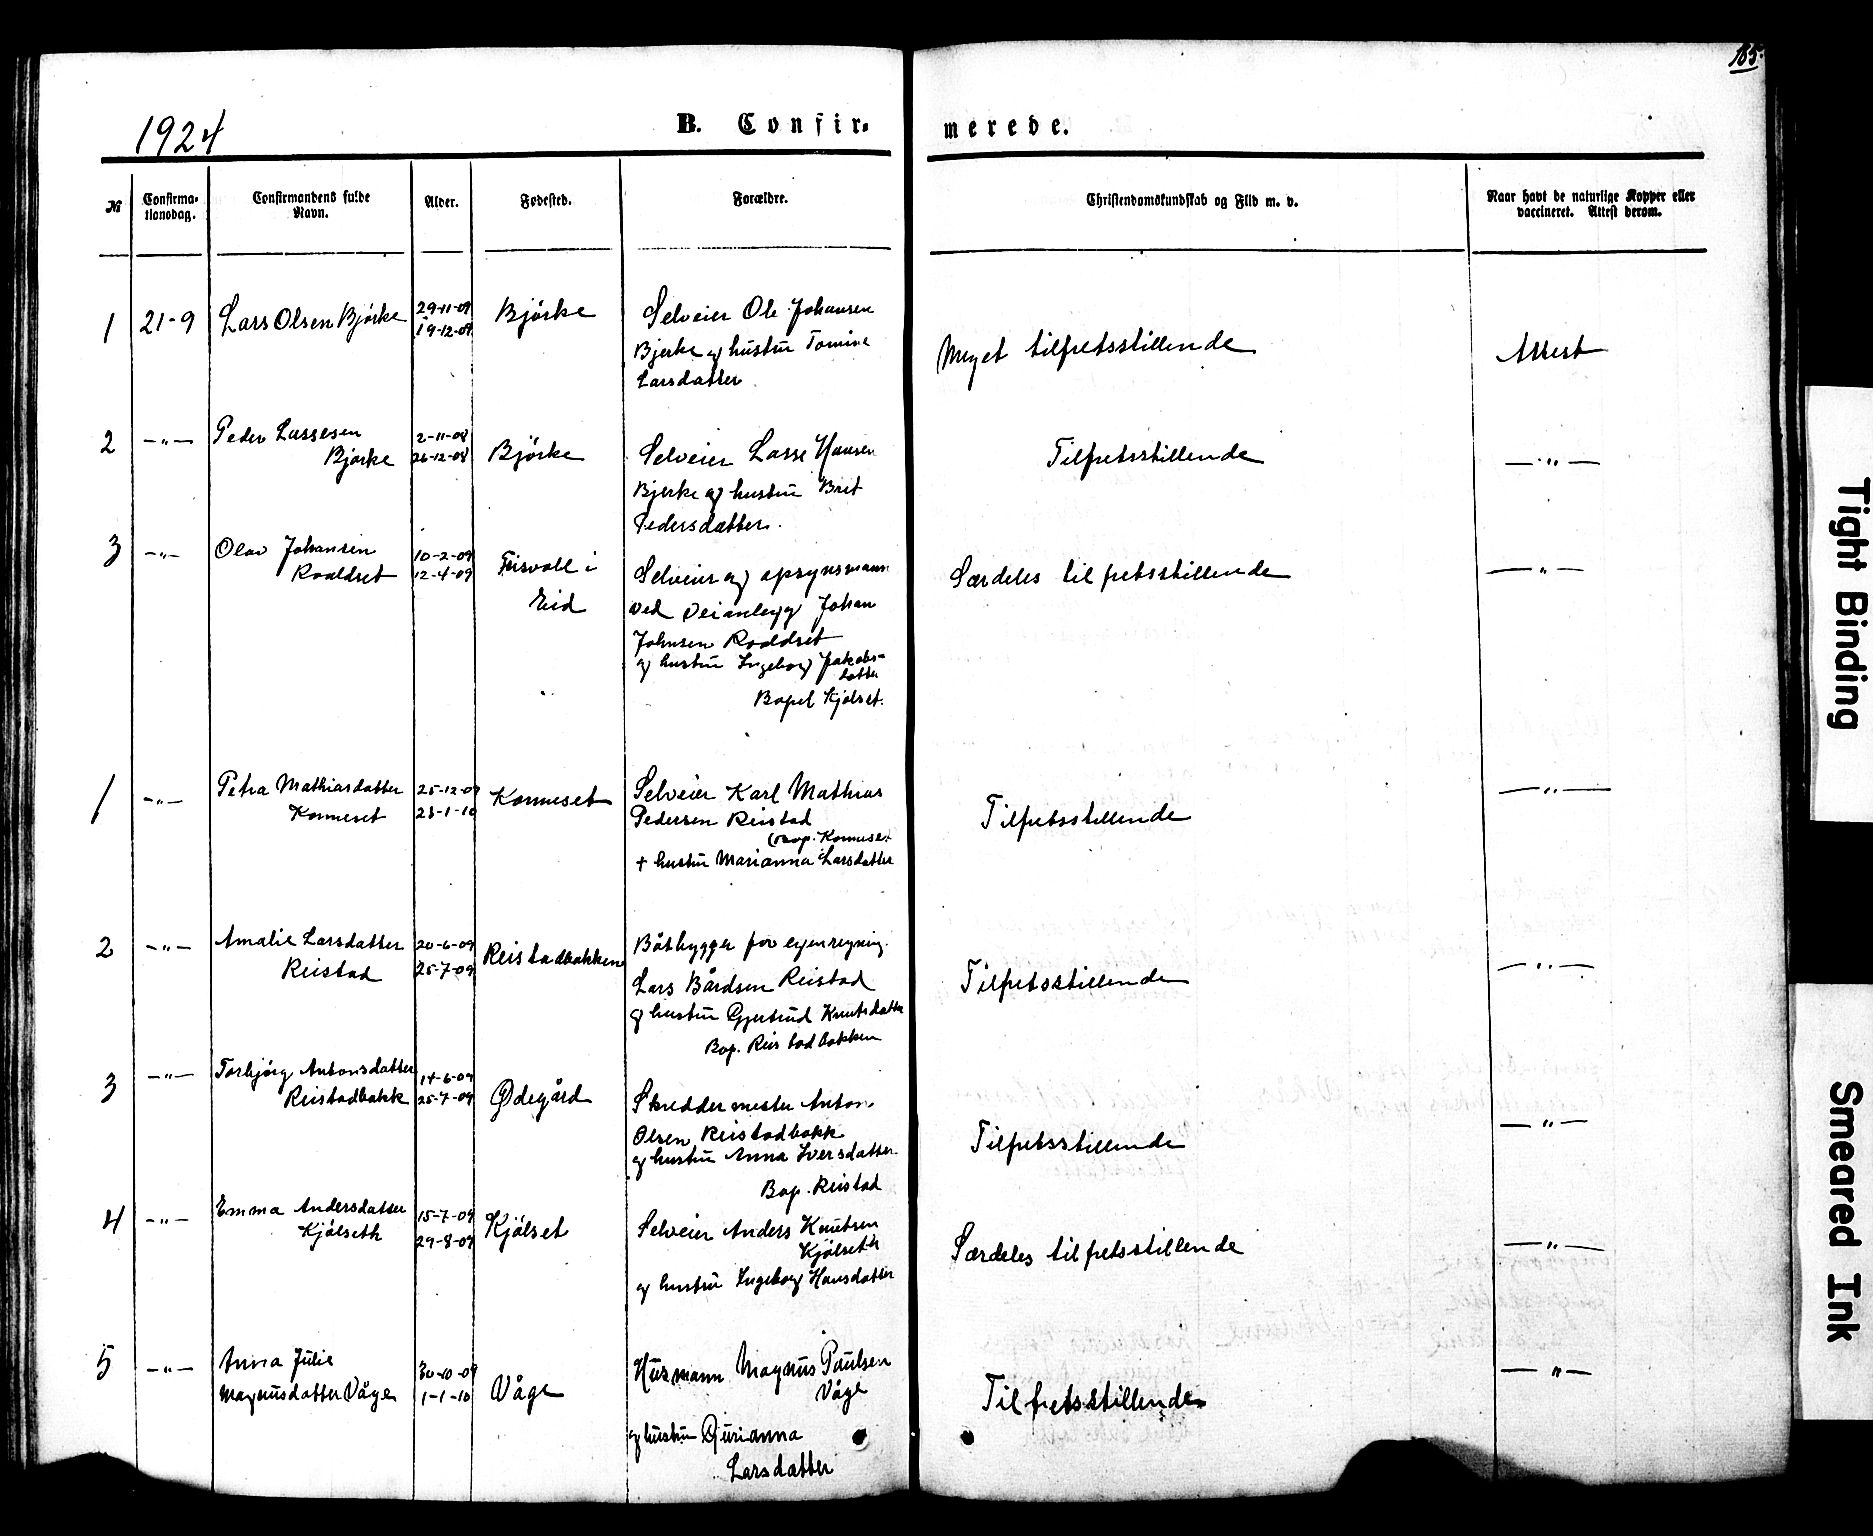 185.
1924
B. Confir-
merede.
№
Confirma-
tionsdag.
Confirmandens fulde
Navn.
Alder.
Fødested.
Forældre.
Christendomskundskab og Flid m. v.
Naar havt de naturlige Kopper eller
vaccineret. Attest derom.
1 21-9 Lars Olsen Bjørke 29-11-09 Bjørke Selveier Ole Johansen
19-12-09 Bjerke og hustru Tomine
Larsdatter
Meget tilfretsstillende Attest
2 -"- Peder Lassesen 2-11-08
Bjørke 26-12-08 Bjørke Selveier Lasse Hansen
Bjerke og hustru Brit
Pedersdatter.
Tilfretsstillende -"-
3 -"- Olav Johansen 10-2-09 Eisvoll i
Roaldset 12-4-09 Eid
Selveier og opsynsmann
ved Veianlegg Johan
Johnsen Roaldset
og hustru Ingeborg Jakobs-
datter
Bopel Kjølset.
Særdeles tilfretsstillende -"-
1 -"- Petra Mathiasdatter 25-12-09
Korneset 23-1-10 Korneset
Selveier Karl Mathias
Pedersen Reistad
(bop. Korneset
+ hustru Marianna Larsdatter
Tilfretsstillende -"-
2 -"- Amalie Larsdatter 20-6-09
Reistad 25-7-09 Reistadbakken
Båtbygger for egen regning.
Lars Bårdsen Reistad
og hustru Gjertrud Knutsdatter
Bop. Reistadbakken
Tilfretsstillende -"-
3 -"- Torbjørg Antonsdatter 14-6-09
Reistadbakk 25-7-09 Ødegård
Skreddermester Anton
Olsen Reistadbakk
og hustru Anna Iversdatter.
Bop. Reistad
Tilfretsstillende -"-
4 -"- Emma Andersdatter 15-7-09
Kjølseth 29-8-09 Kjølset
Selveier Anders Knutsen
Kjølseth
og hustru Ingeborg Hansdatter
Særdeles tilfretsstillende -"-
5 -"- Anna Julie 30-10-09
Magnusdatter Våge 1-1-10 Våge
Husmann Magnus Paulsen
Våge
og hustru Gjurianna
Larsdatter
Tilfretsstillende -"-
Tight Binding
Smeared Ink